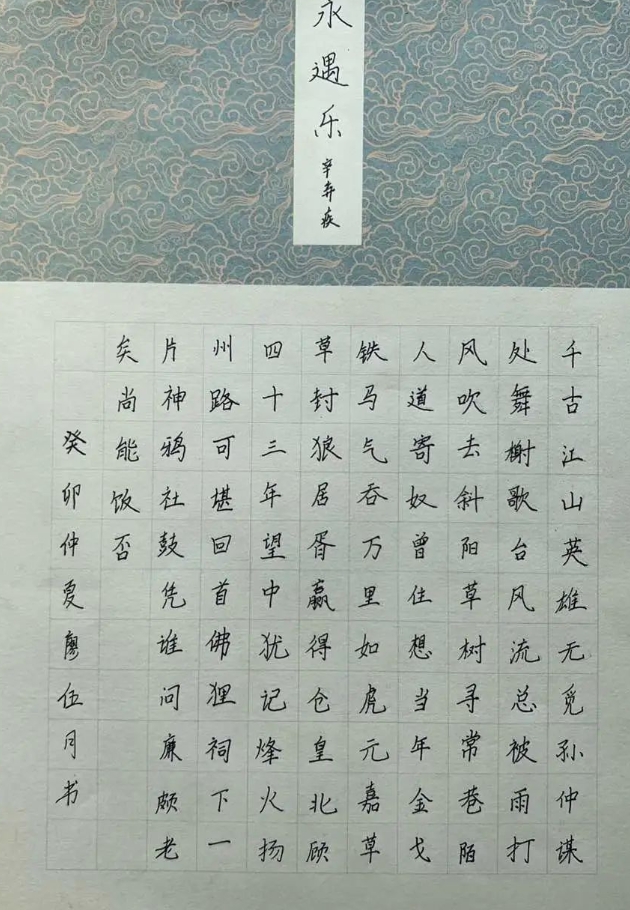 永遇乐
辛弃疾
千古江山英雄无觅孙仲谋
处舞榭歌台风流总被雨打
风吹去斜阳草树寻常巷陌
人道寄奴曾住想当年金戈
铁马气吞万里如虎元嘉草
草封狼居胥赢得仓皇北顾
四十三年望中犹记烽火扬
州路可堪回首佛狸祠下一
片神鸦社鼓凭谁问廉颇老
矣尚能饭否
癸卯仲夏廖伍月书